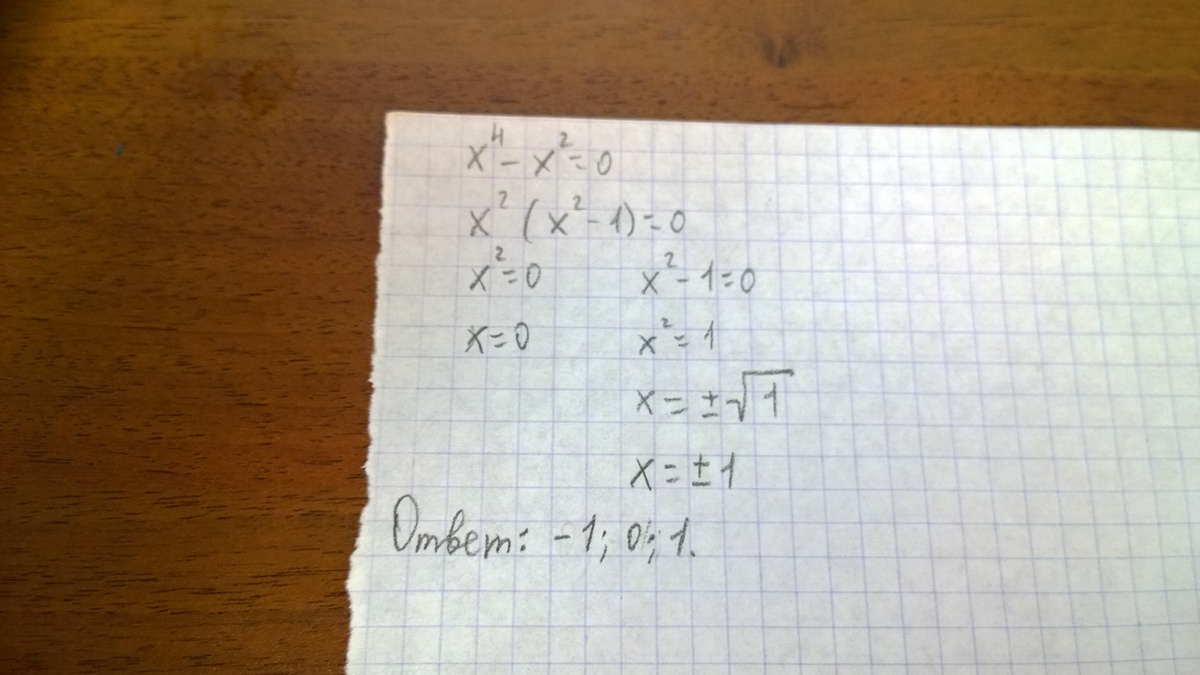 x⁴ - x² = 0
x² (x² - 1) = 0
x² = 0 x² - 1 = 0
x = 0 x² = 1
x = ±√1
x = ±1
Ответ: -1; 0; 1.